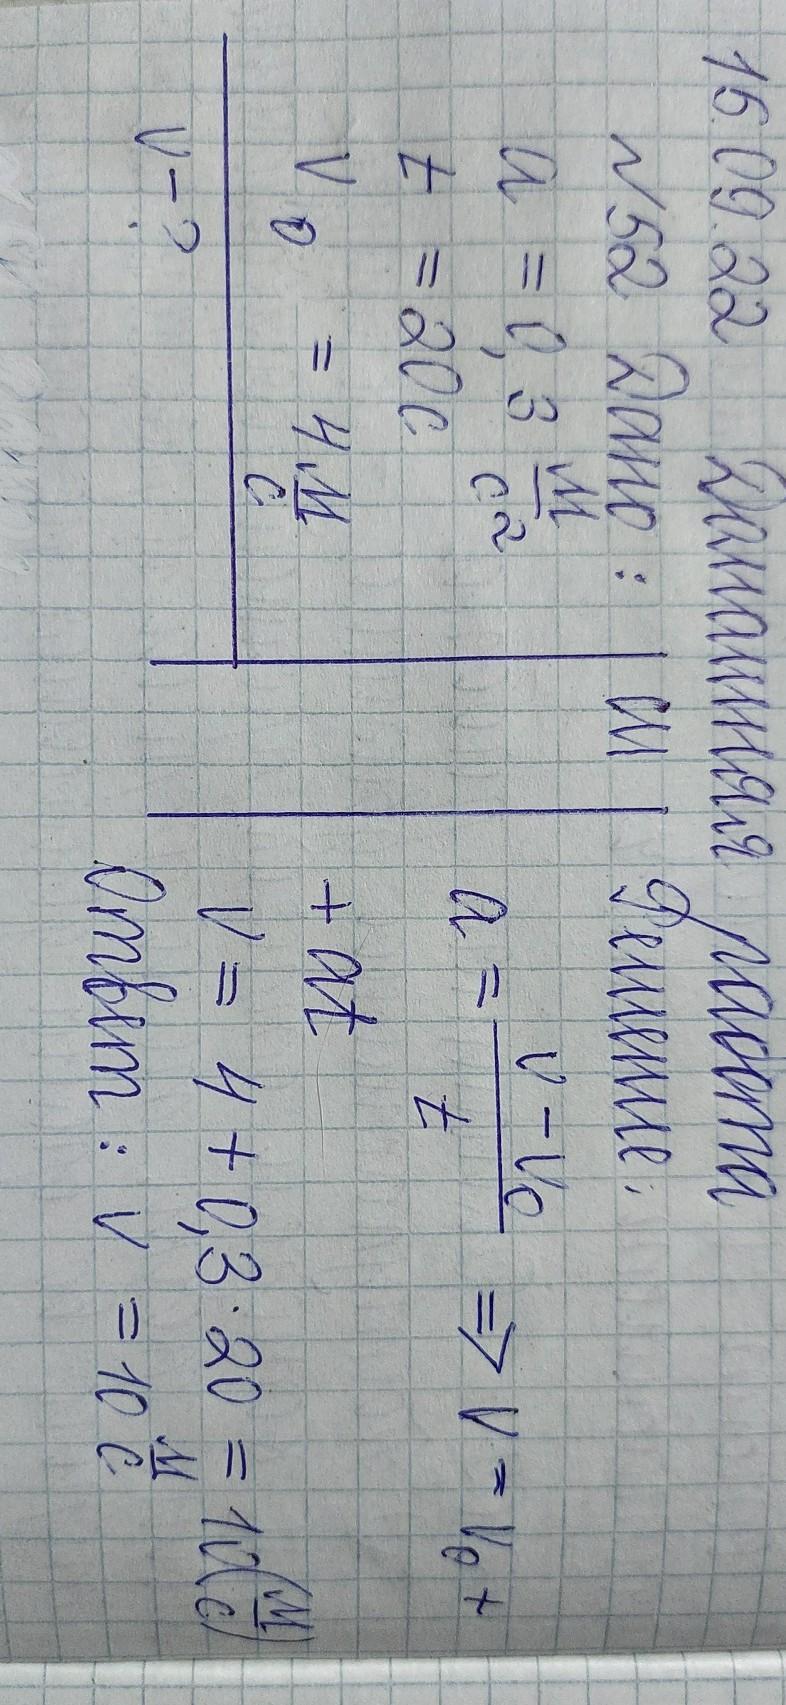 16.09.22 Домашняя работа
№52 Дано:
a = 0,3 м/с²
t = 20c
v₀ = 4 м/с
v - ?
Решение:
a = (v - v₀)/t ⇒ v = v₀ +
+ at
v = 4 + 0,3 · 20 = 10(м/с)
Ответ: v = 10 м/с